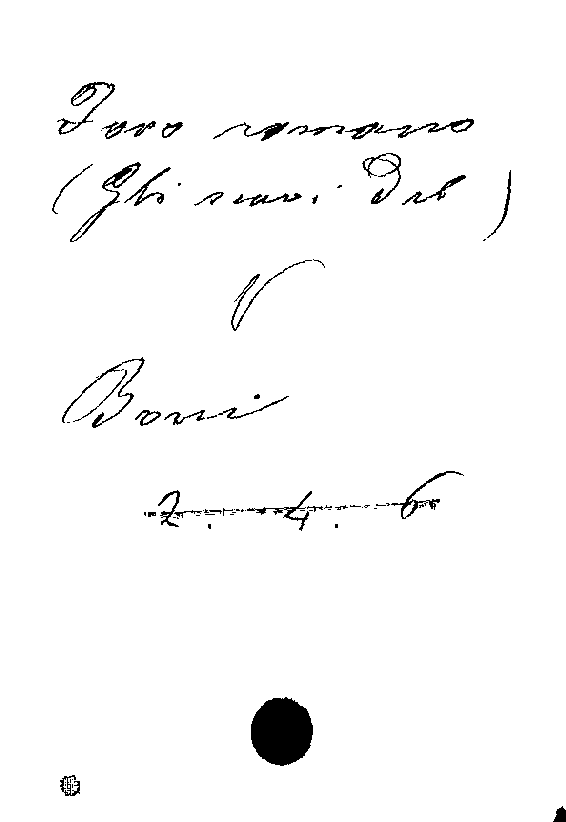 Foro romano
(Gli scavi del)
V
Boni
2. 4. 6